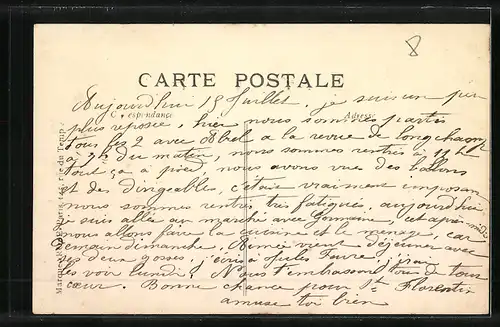 8
CARTE POSTALE
Correspondance Adresse
Aujourd'hui 15 Juillet, je suis un peu
plus reposée, hier nous sommes partis
tous les 2 avec Abel a la revue de longchamp
a 2h du matin, nous sommes rentrés à 11h
tout ça a pied, nous avons vus des ballons
et des dirigeables, c'était vraiment imposant
nous sommes rentrés très fatigués, aujourd'hui
je suis allée au marché avec Germaine, cet après-midi
nous allons faire la cuisine et le menage, car
demain dimanche Aimée vient déjeuner avec
les deux gosses, j'écris a Jules Favre, j'irai
les voir lundi? Nous t'embrassons tous de tout
cœur. Bonne chance pour St Florentin
amuse toi bien
rue du Temple